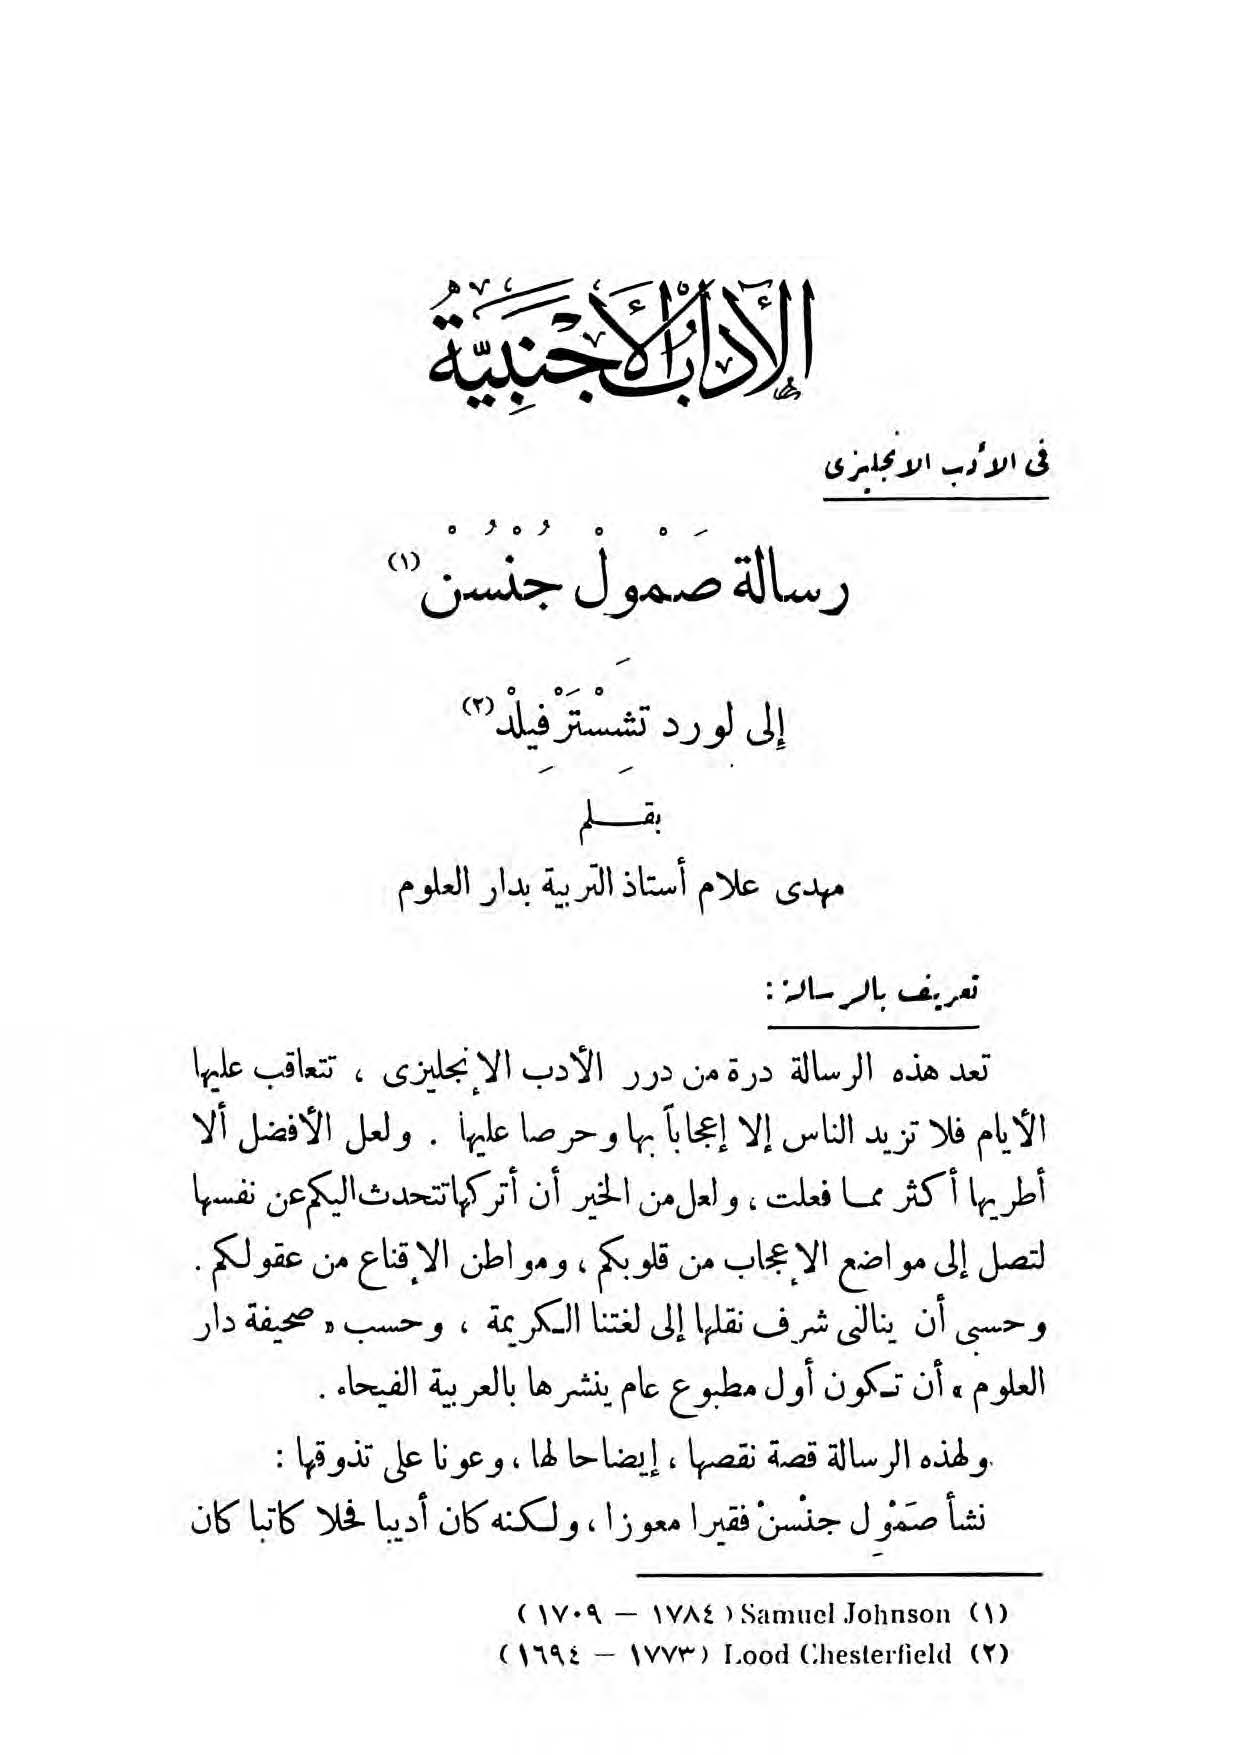 الآداب الأجنبية
في الأدب الانجليزى
رسالة صَمْولْ جُنْسُنْ (١)
إلى لورد تشِسْتَرْفِيلْد (٢)
بقـــلم
مهدى علام أستاذ التربية بدار العلوم
تعريف بالرسالة :
تعد هذه الرسالة درة من درر الأدب الإنجليزى ، تتعاقب عليها
الأيام فلا تزيد الناس إلا إعجاباً بها وحرصا عليها . ولعل الأفضل ألا
أطريها أكثر مما فعلت ، ولعل من الخير أن أتركها تتحدث اليكم عن نفسها
لتصل إلى مواضع الإعجاب من قلوبكم ، ومواطن الإقناع من عقولكم .
وحسبى أن ينالنى شرف نقلها إلى لغتنا الكريمة ، وحسب « صحيفة دار
العلوم » أن تكون أول مطبوع عام ينشرها بالعربية الفيحاء .
ولهذه الرسالة قصة نقصها ، إيضاحا لها ، وعونا على تذوقها :
نشأ صَمْوِل جنْسنْ فقيرا معوزا ، ولكنه كان أديبا فحلا كاتبا كان
(١) Samuel Johnson (١٧٠٩ — ١٧٨٤)
(٢) Lood Chesterfield (١٦٩٤ — ١٧٧٣)